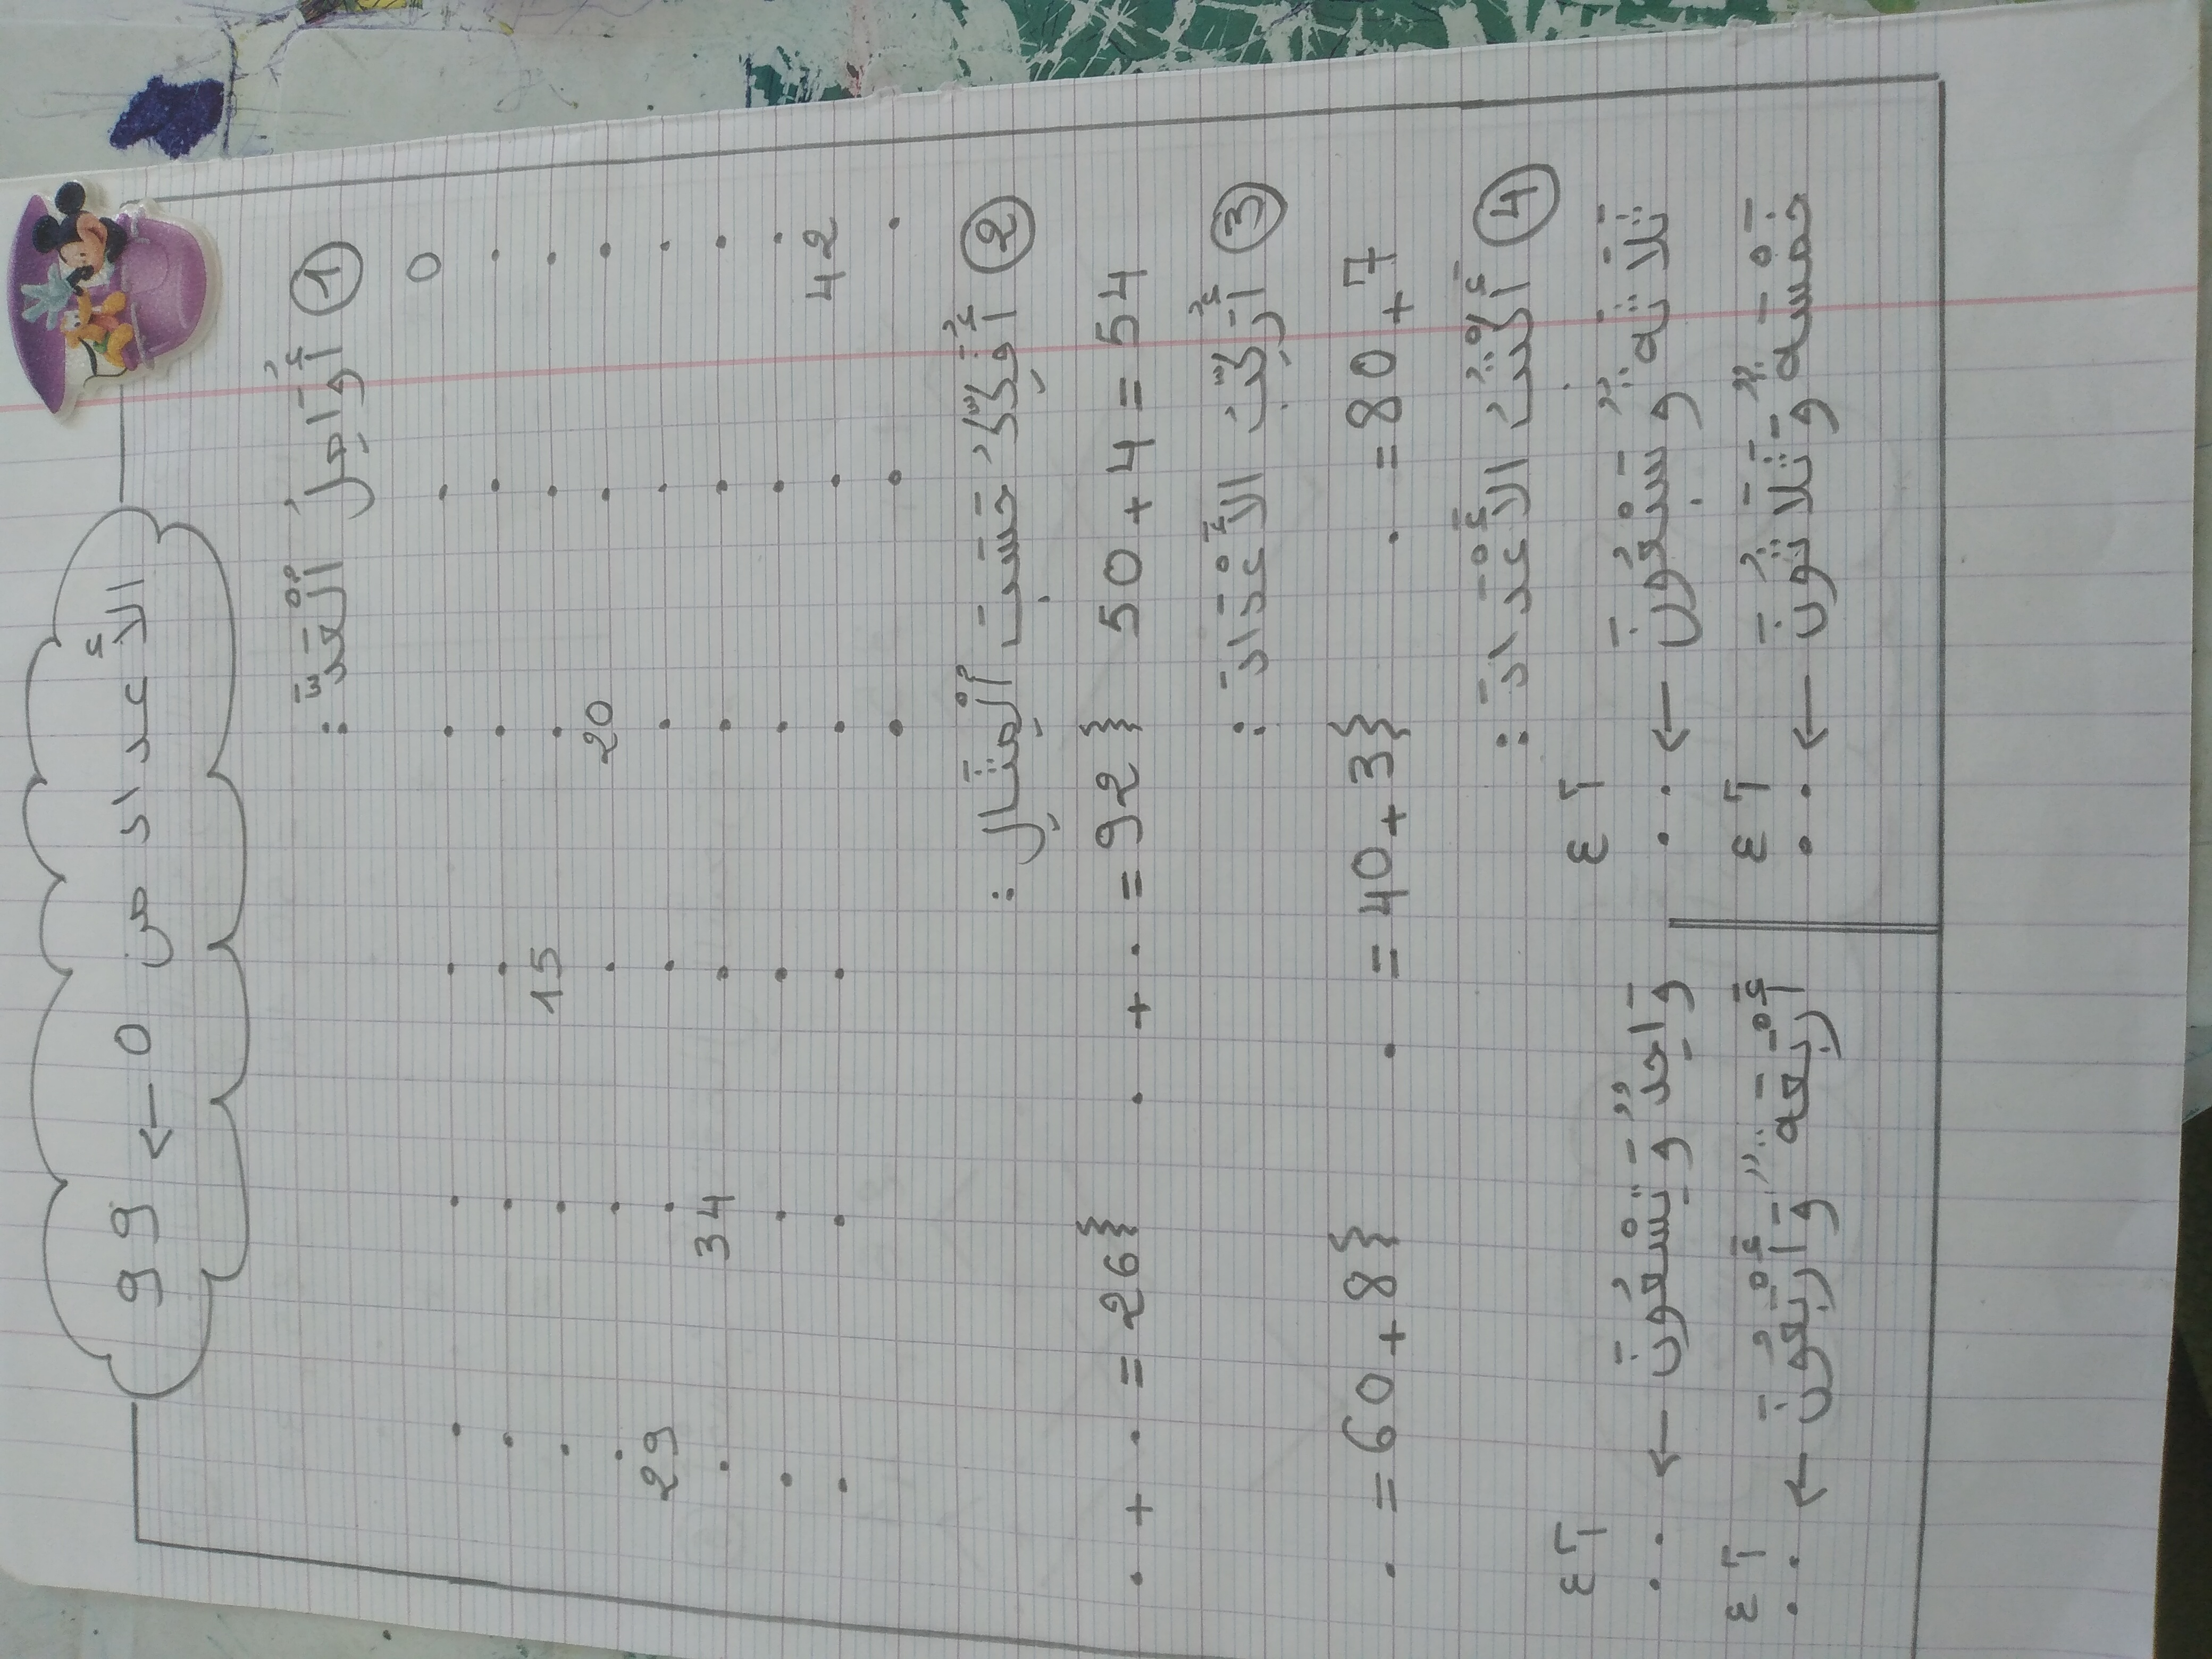 الأعداد من 0 ← 99
① أُوَاصِلُ الْعَدَّ :
0 . . . . .
. . . . . .
. . . 15 . .
. . 20 . . .
. . . . . 29
. . . . 34 .
. . . . . .
42 . . . . .
. . .
② أُفَكِّكُ حَسَبَ الْمِثَالِ :
. + . = 26 } . + . = 92 } 50 + 4 = 54
③ أُرَكِّبُ الأَعْدَادَ :
. = 60 + 8 } . = 40 + 3 } . = 80 + 7
④ أَكْتُبُ الأَعْدَادَ :
آ ع آ ع
ثَلَاثَةٌ وَ سَبْعُونَ ← . . وَاحِدٌ وَ تِسْعُونَ ← . .
آ ع آ ع
خَمْسَةٌ وَ ثَلَاثُونَ ← . . أَرْبَعَةٌ وَ أَرْبَعُونَ ← . .